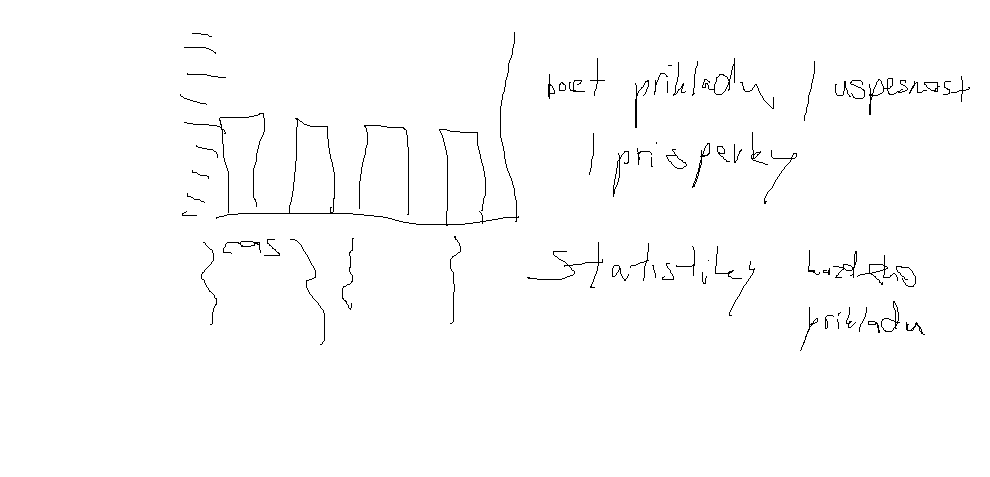 pocet prikladu / uspesnost
/ prisperky
cas
Statistiky kazdeho
prikladu